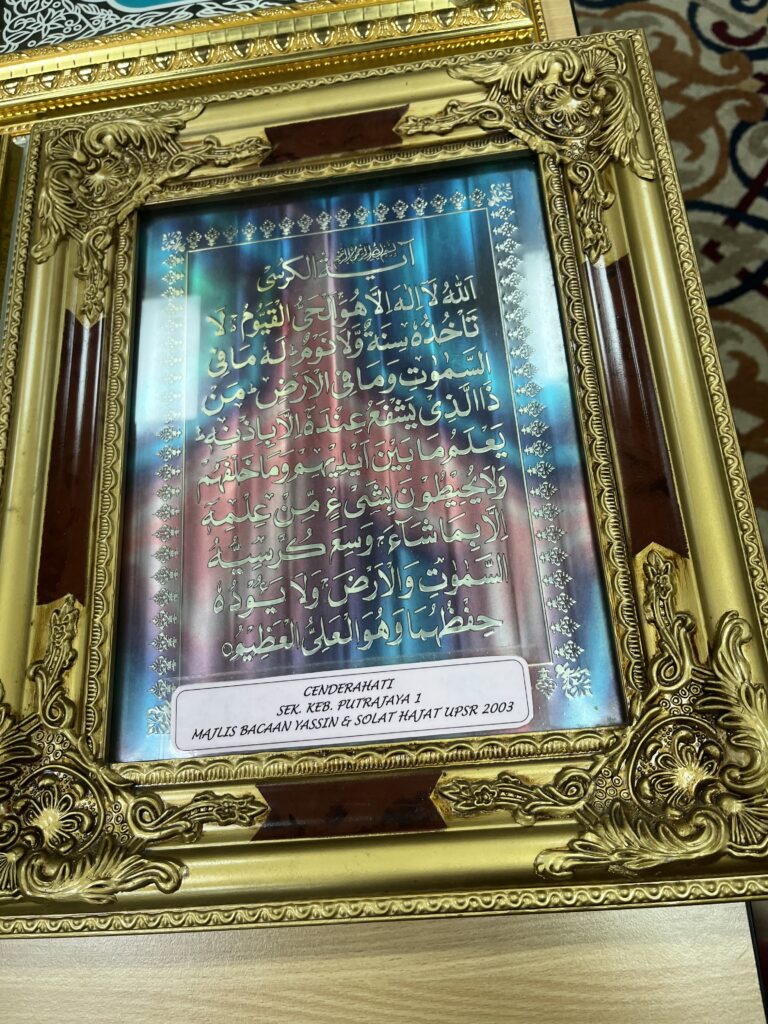 بسم الله الرحمن الرحيم
آية الكرسى
اَللهُ لَا اِلٰهَ اِلَّا هُوَ الْحَىُّ الْقَيُّوْمُ لَا
تَأْخُذُهٗ سِنَةٌ وَّلَا نَوْمٌ لَهٗ مَا فِى
السَّمٰوٰتِ وَمَا فِى الْاَرْضِ مَنْ
ذَا الَّذِىْ يَشْفَعُ عِنْدَهٗ اِلَّا بِاِذْنِهٖ
يَعْلَمُ مَا بَيْنَ اَيْدِيْهِمْ وَمَا خَلْفَهُمْ
وَلَا يُحِيْطُوْنَ بِشَىْءٍ مِّنْ عِلْمِهٖ
اِلَّا بِمَا شَآءَ وَسِعَ كُرْسِيُّهُ
السَّمٰوٰتِ وَالْاَرْضَ وَلَا يَـُٔوْدُهٗ
حِفْظُهُمَا وَهُوَ الْعَلِىُّ الْعَظِيْمُ
CENDERAHATI
SEK. KEB. PUTRAJAYA 1
MAJLIS BACAAN YASSIN & SOLAT HAJAT UPSR 2003